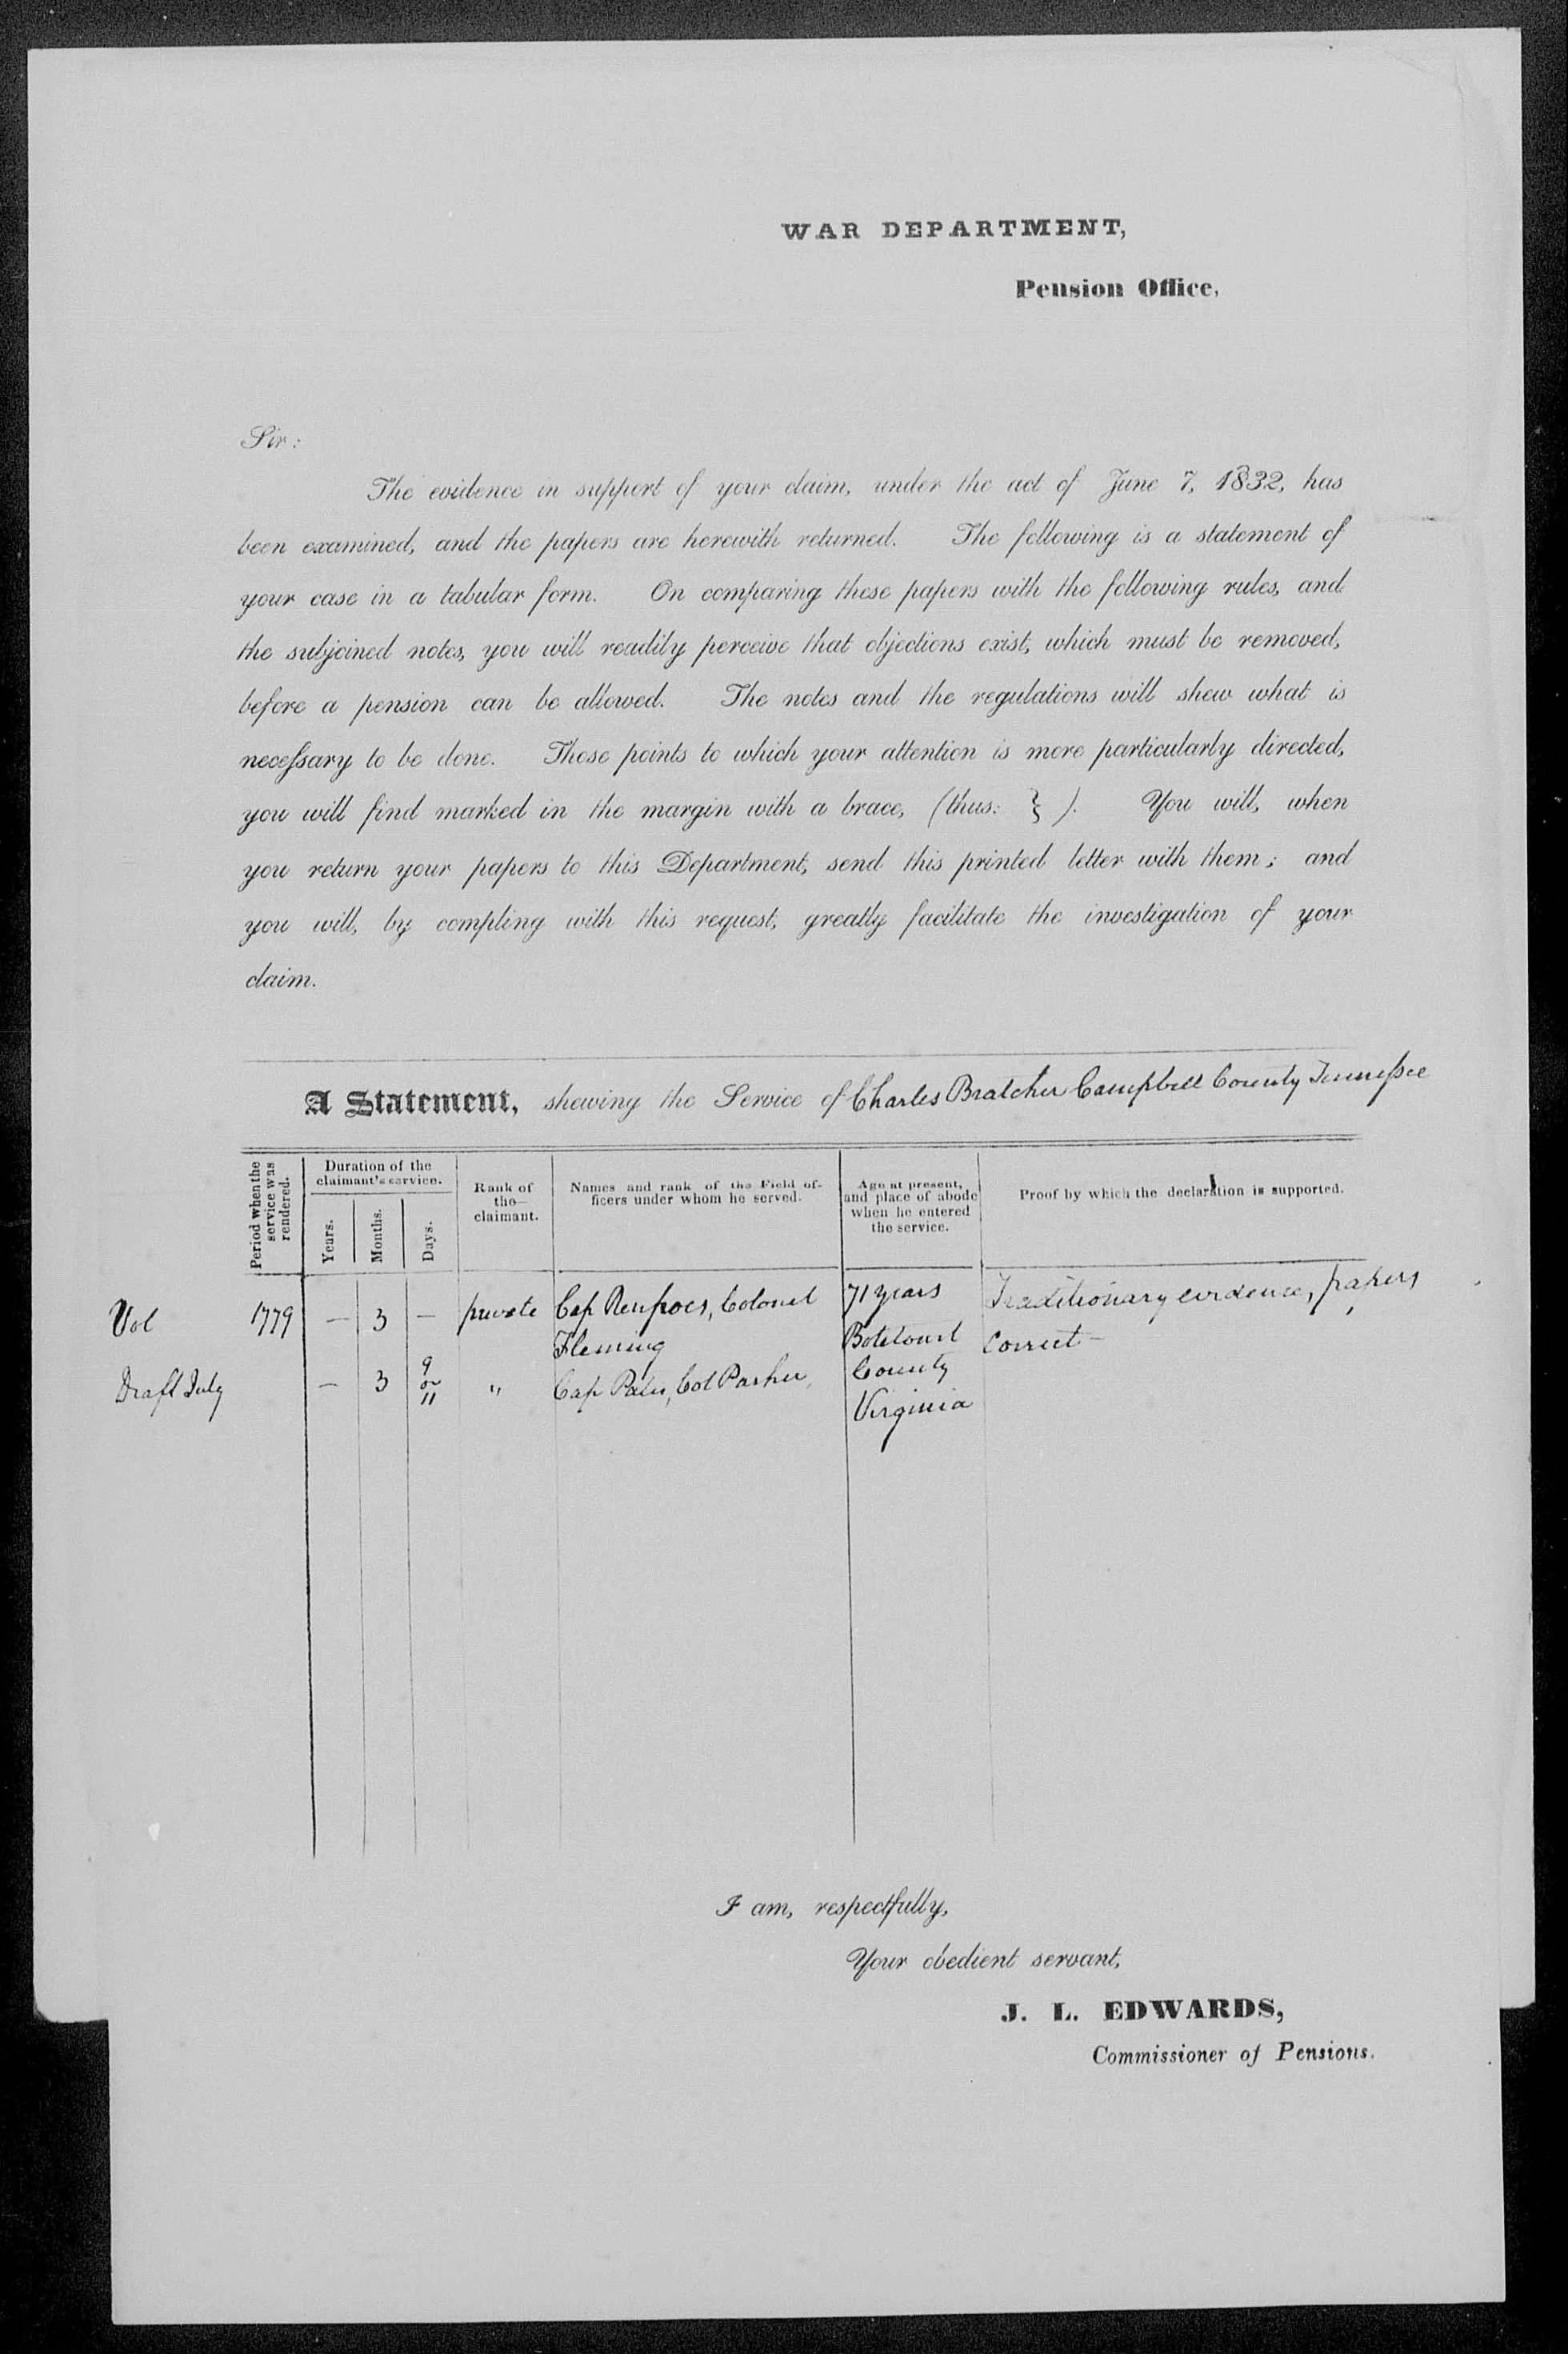 WAR DEPARTMENT,
Pension Office,
Sir:
The evidence in support of your claim, under the act of June 7, 1832, has
been examined, and the papers are herewith returned. The following is a statement of
your case in a tabular form. On comparing these papers with the following rules, and
the subjoined notes, you will readily perceive that objections exist, which must be removed,
before a pension can be allowed. The notes and the regulations will shew what is
necessary to be done. Those points to which your attention is more particularly directed,
you will find marked in the margin with a brace, (thus: } ). You will, when
you return your papers to this Department, send this printed letter with them; and
you will, by compling with this request, greatly facilitate the investigation of your
claim.
A Statement, shewing the Service of Charles Bratcher Campbell County Tennessee
Period when the service was rendered.
Duration of the claimant's service.
Years.
Months.
Days.
Rank of the claimant.
Names and rank of the Field officers under whom he served.
Age at present, and place of abode when he entered the service.
Proof by which the declaration is supported.
Vol 1779 — 3 — private Cap Renfroes, Colonel 71 years Traditionary evidence, papers
Fleming Botetourt correct—
Draft July — 3 9 or 11 " Cap Pates, Col Parker, County
Virginia
I am, respectfully,
Your obedient servant,
J. L. EDWARDS,
Commissioner of Pensions.